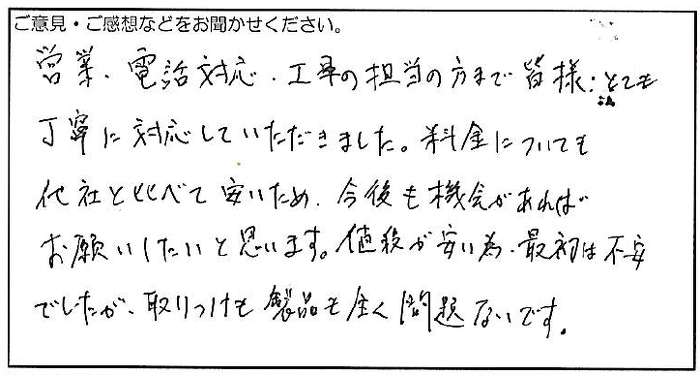 ご意見・ご感想などをお聞かせください。
営業、電話対応、工事の担当の方まで皆様、とても
丁寧に対応していただきました。料金についても
他社と比べて安いため、今後も機会があれば
お願いしたいと思います。値段が安い為、最初は不安
でしたが、取りつけも製品も全く問題ないです。